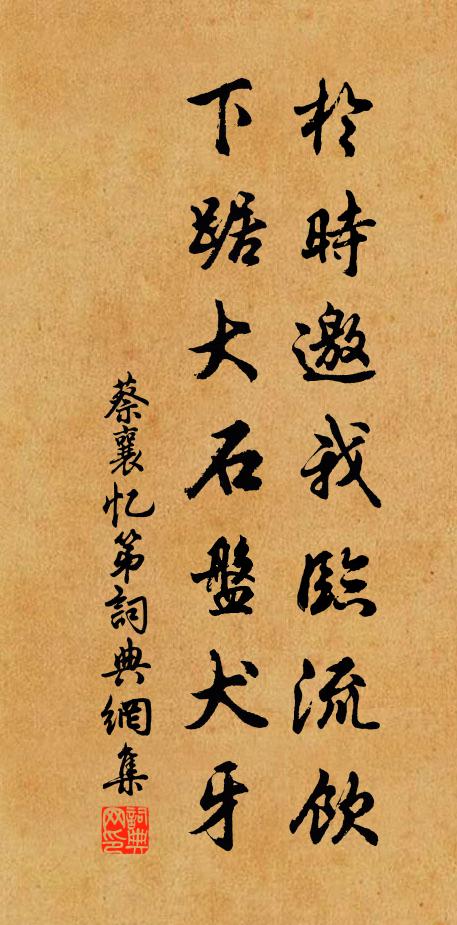 於時邀我臨流飲
下踞大石盤犬牙
蔡襄忆弟詞典網集
詞典网印